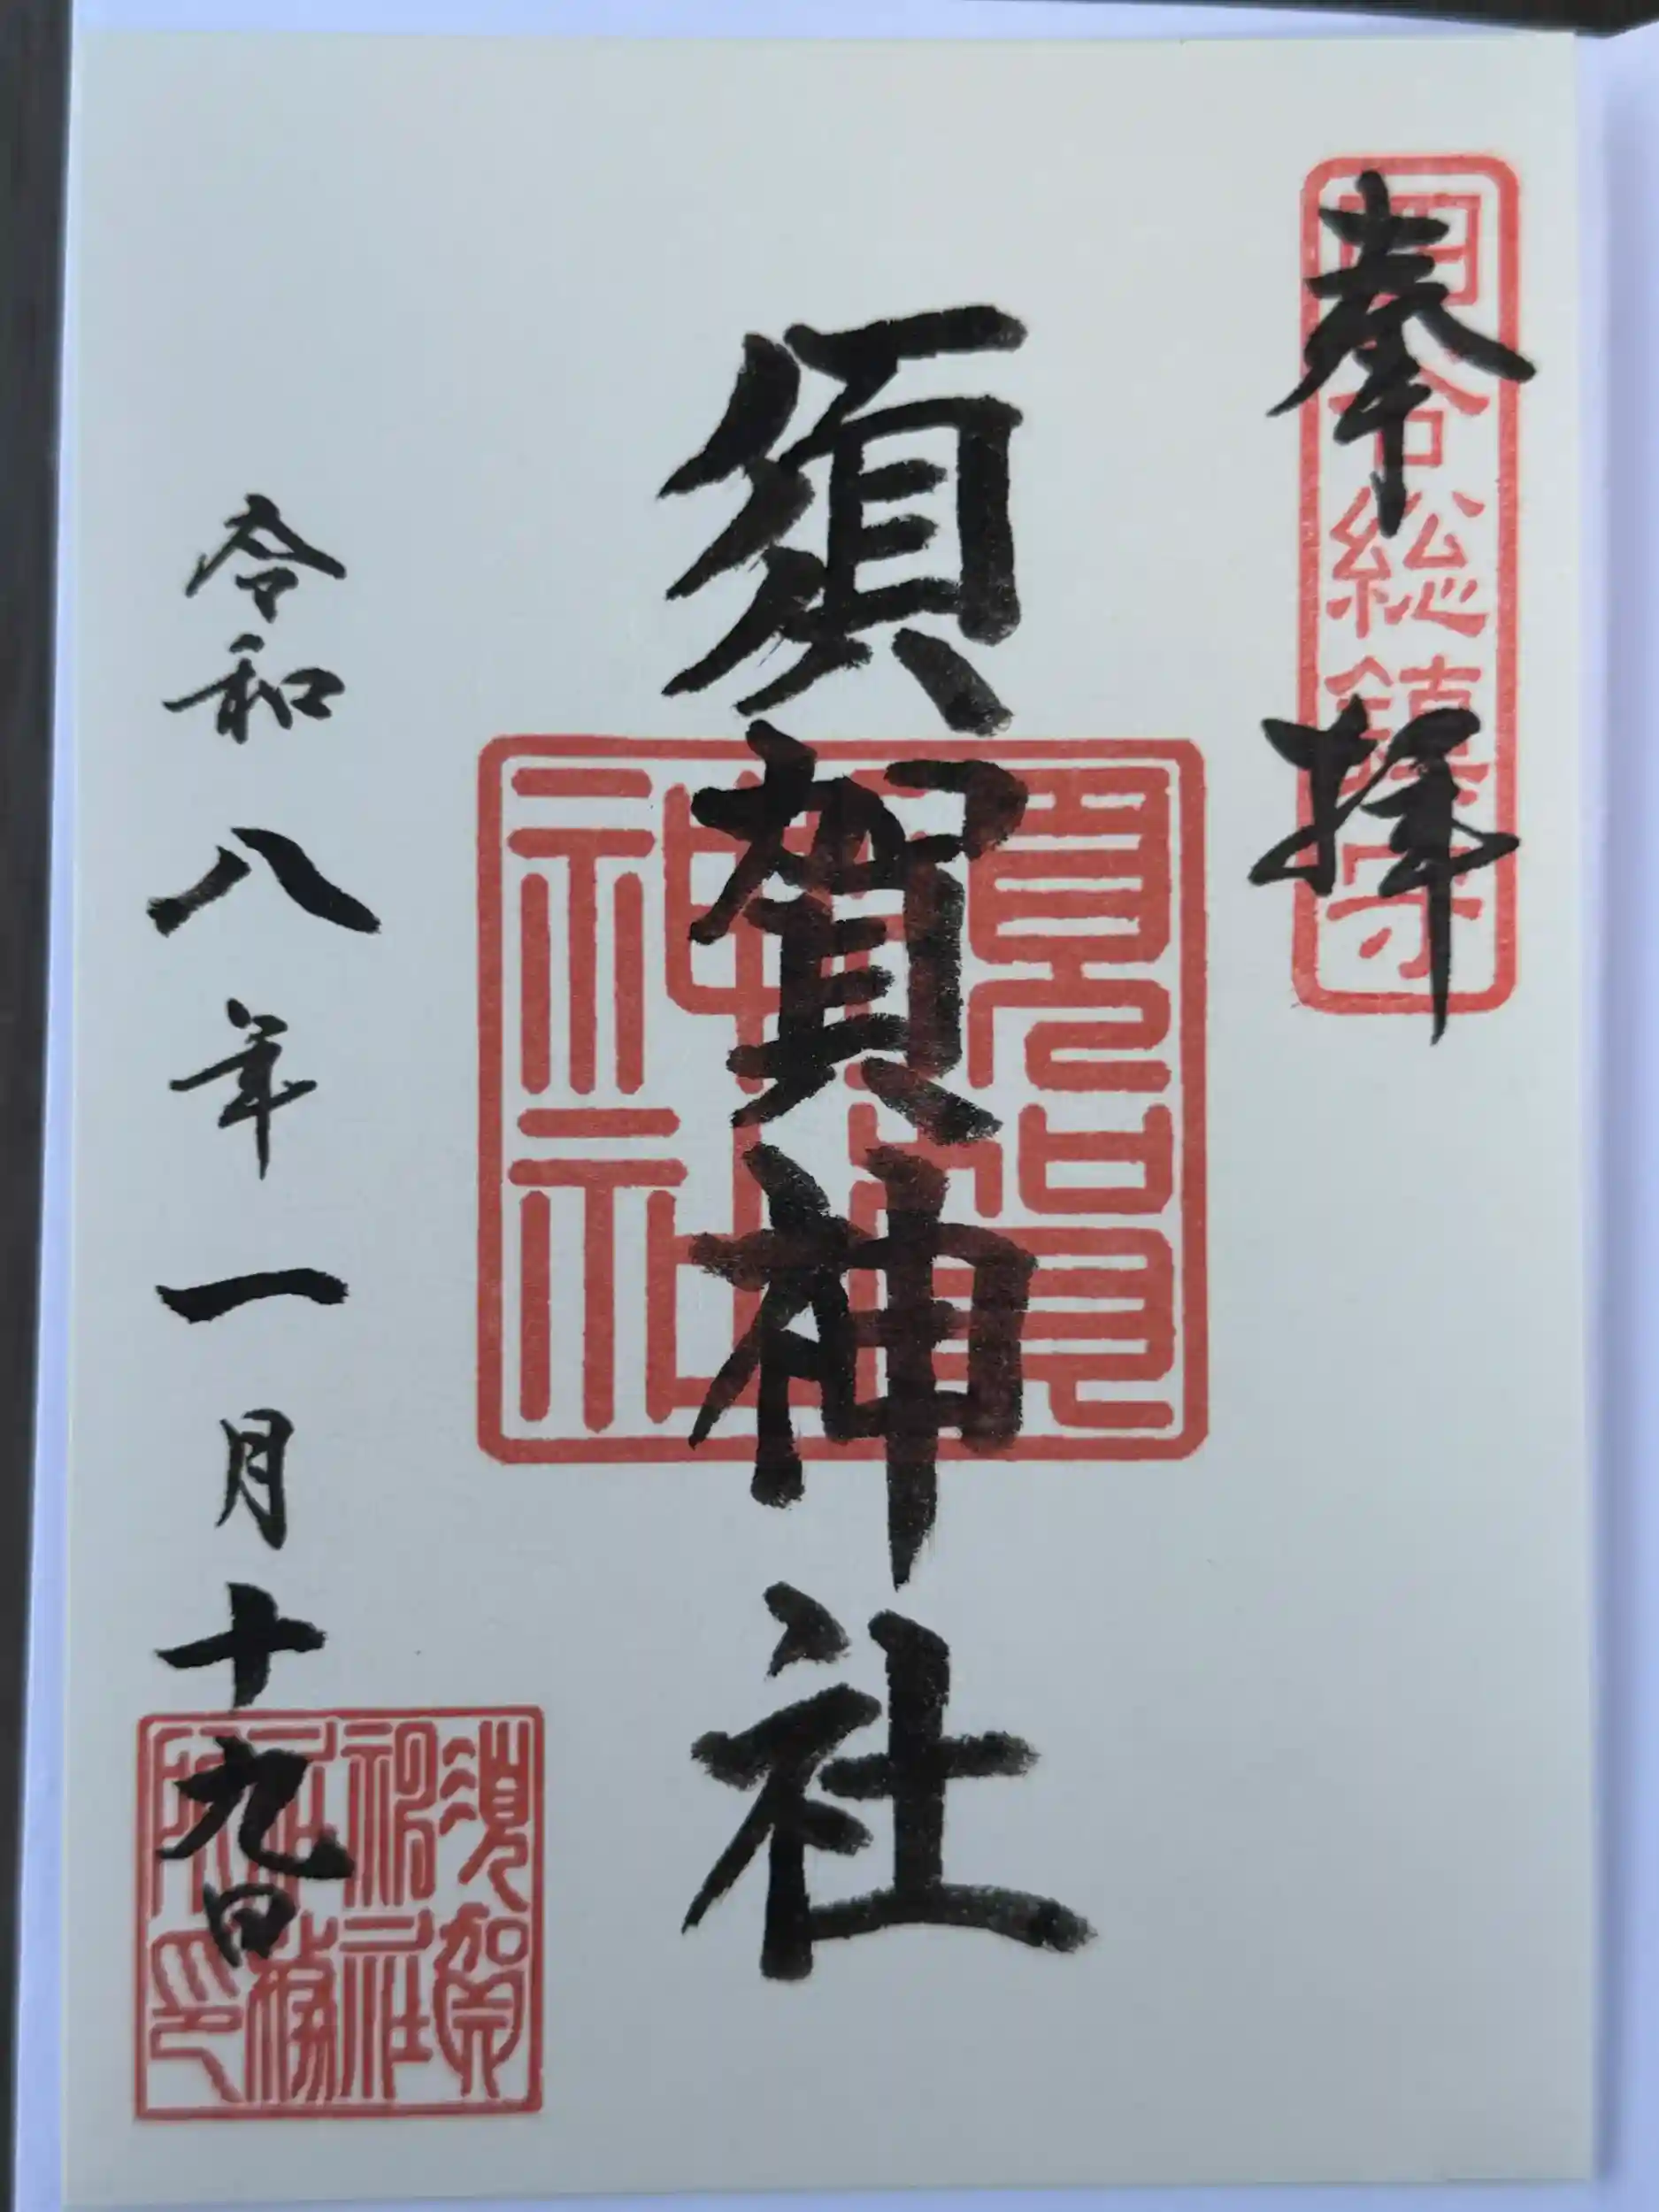 奉拝
四谷総鎮守
須賀神社
須賀神社
令和八年一月十九日
須賀神社社務所印